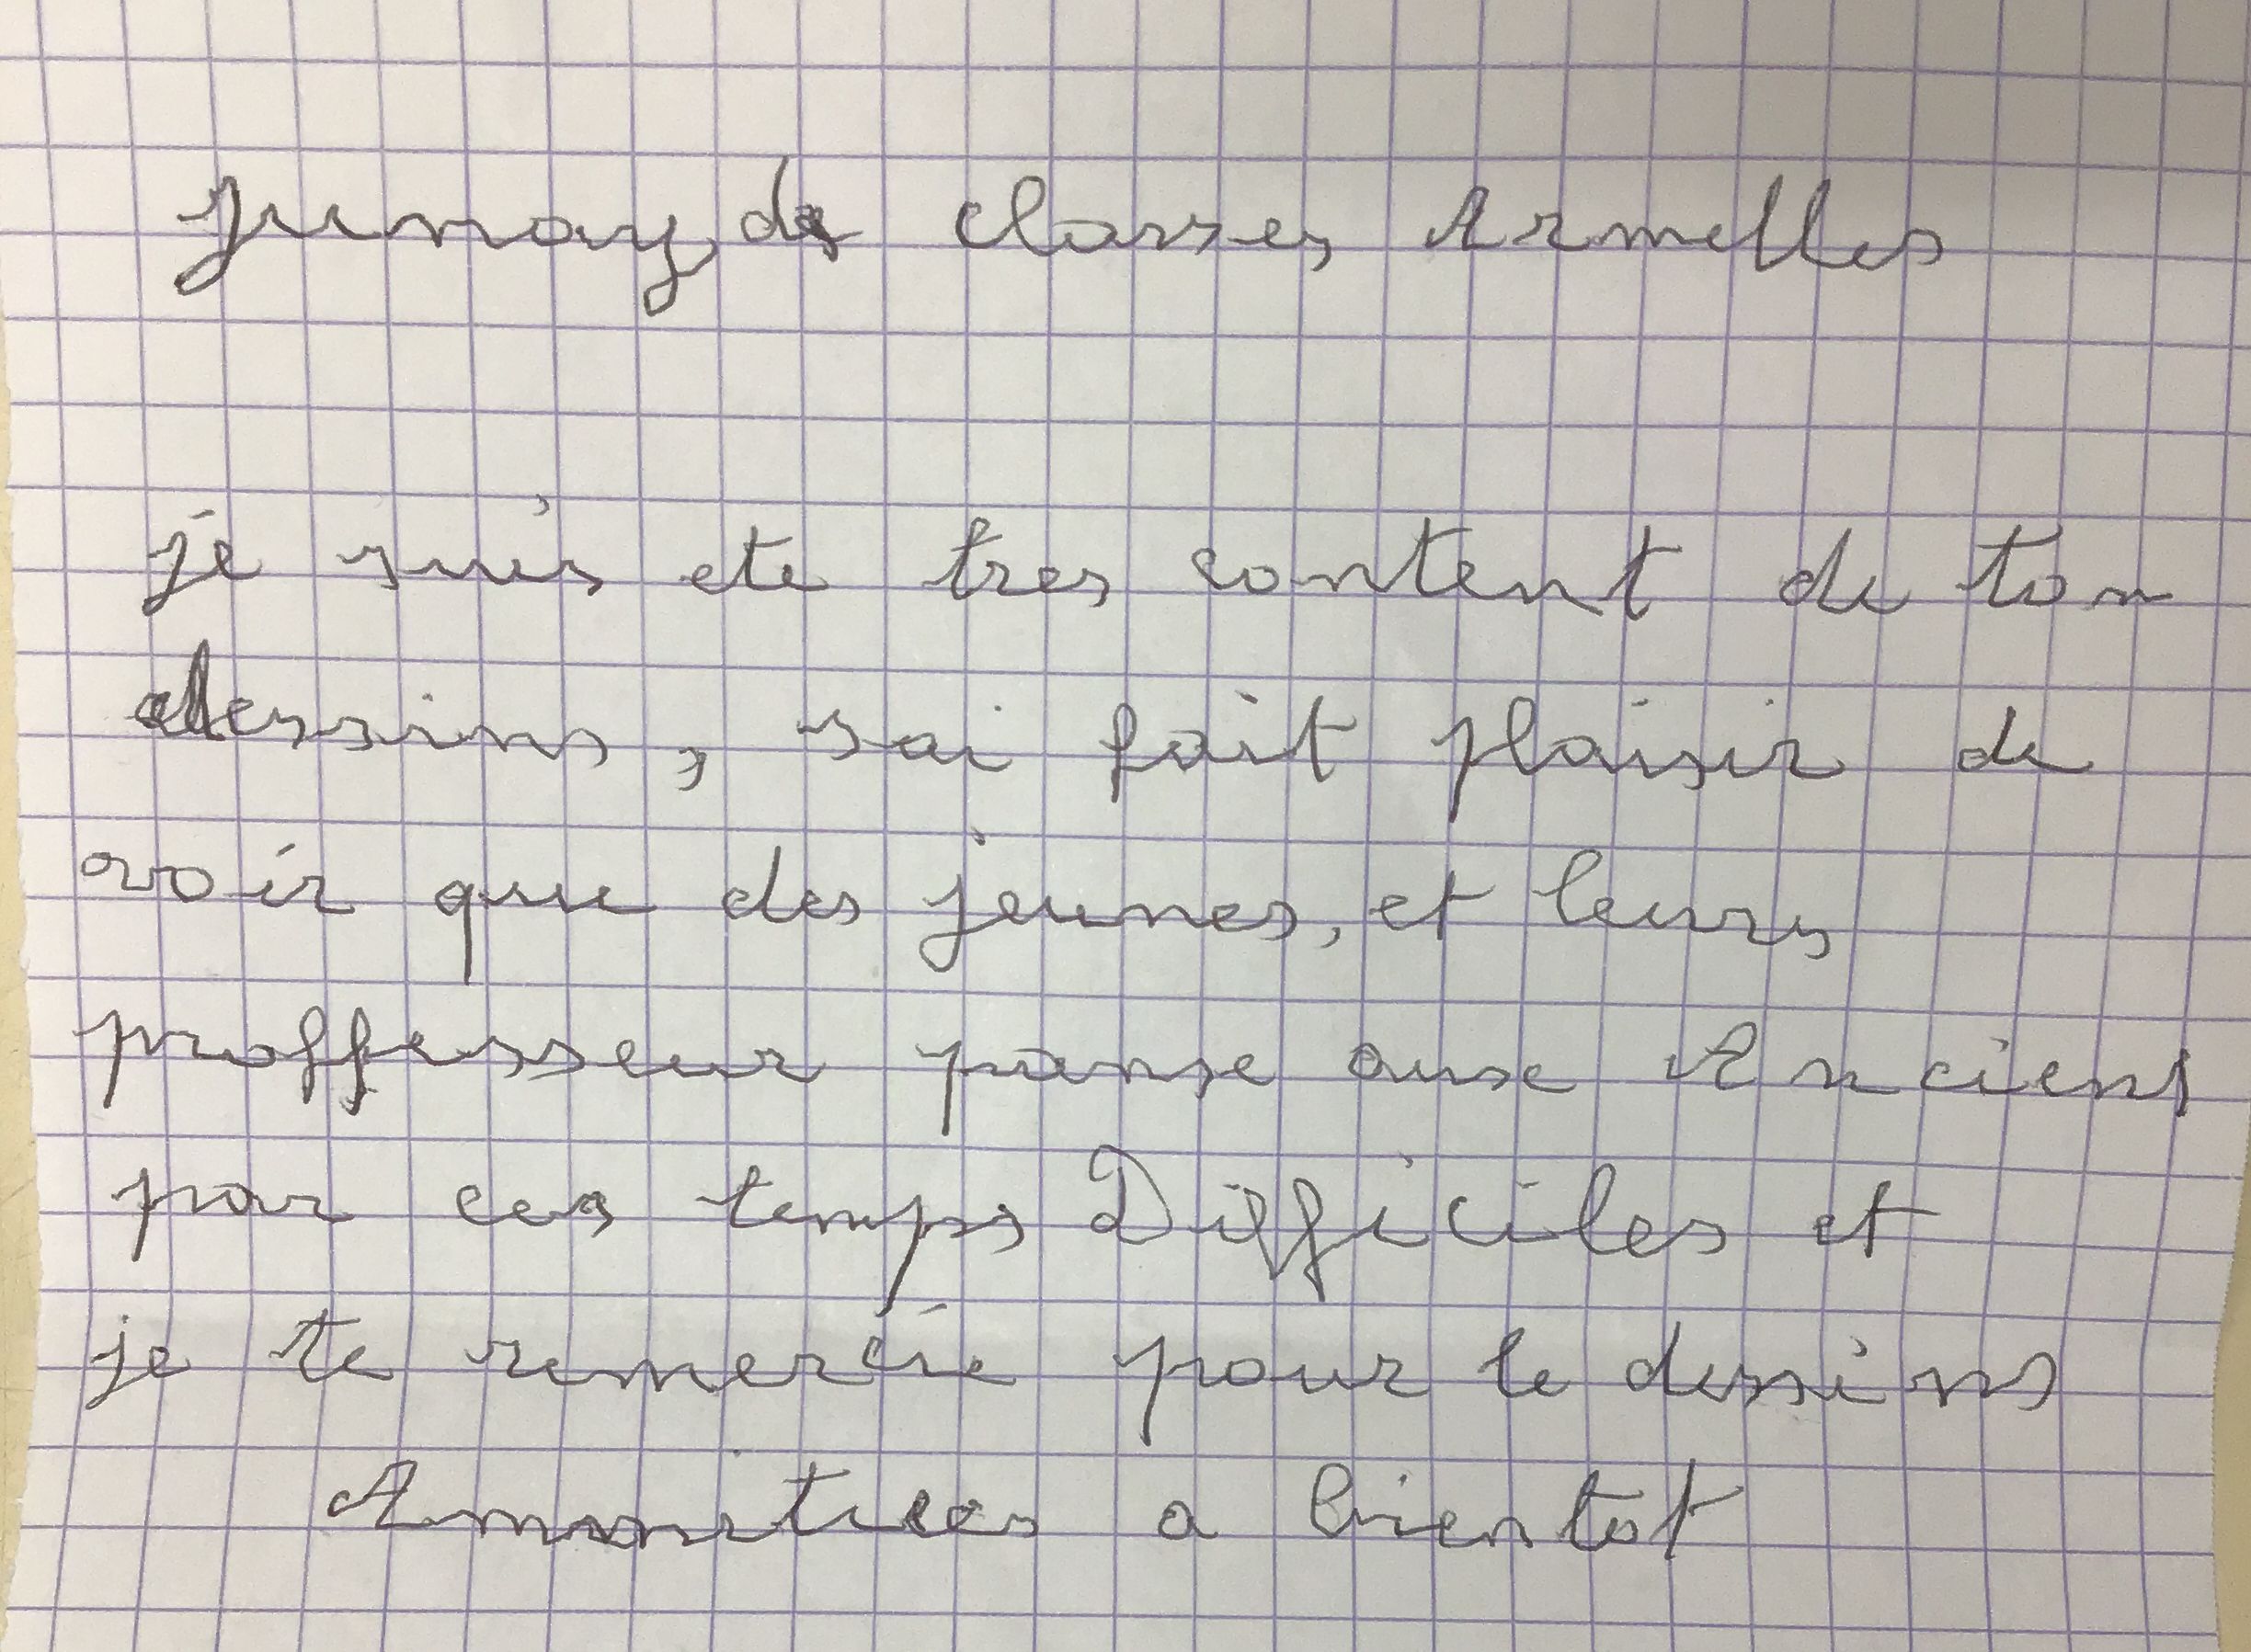 Junay de classes Armelles
je suis ete tres content de ton
dessins, sai fait plaisir de
voir que des jeunes, et leurs
proffesseur panse ause Anciens
par ces temps Difficiles et
je te remercie pour le dessins
Ammitiees a bientot